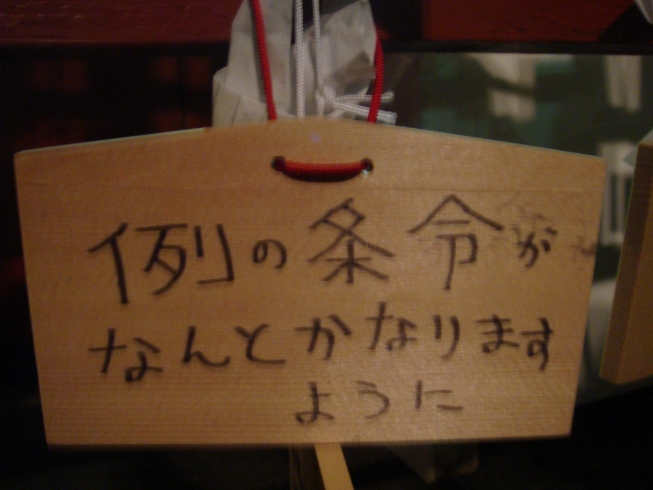 例の条令が
なんとかなります
ように